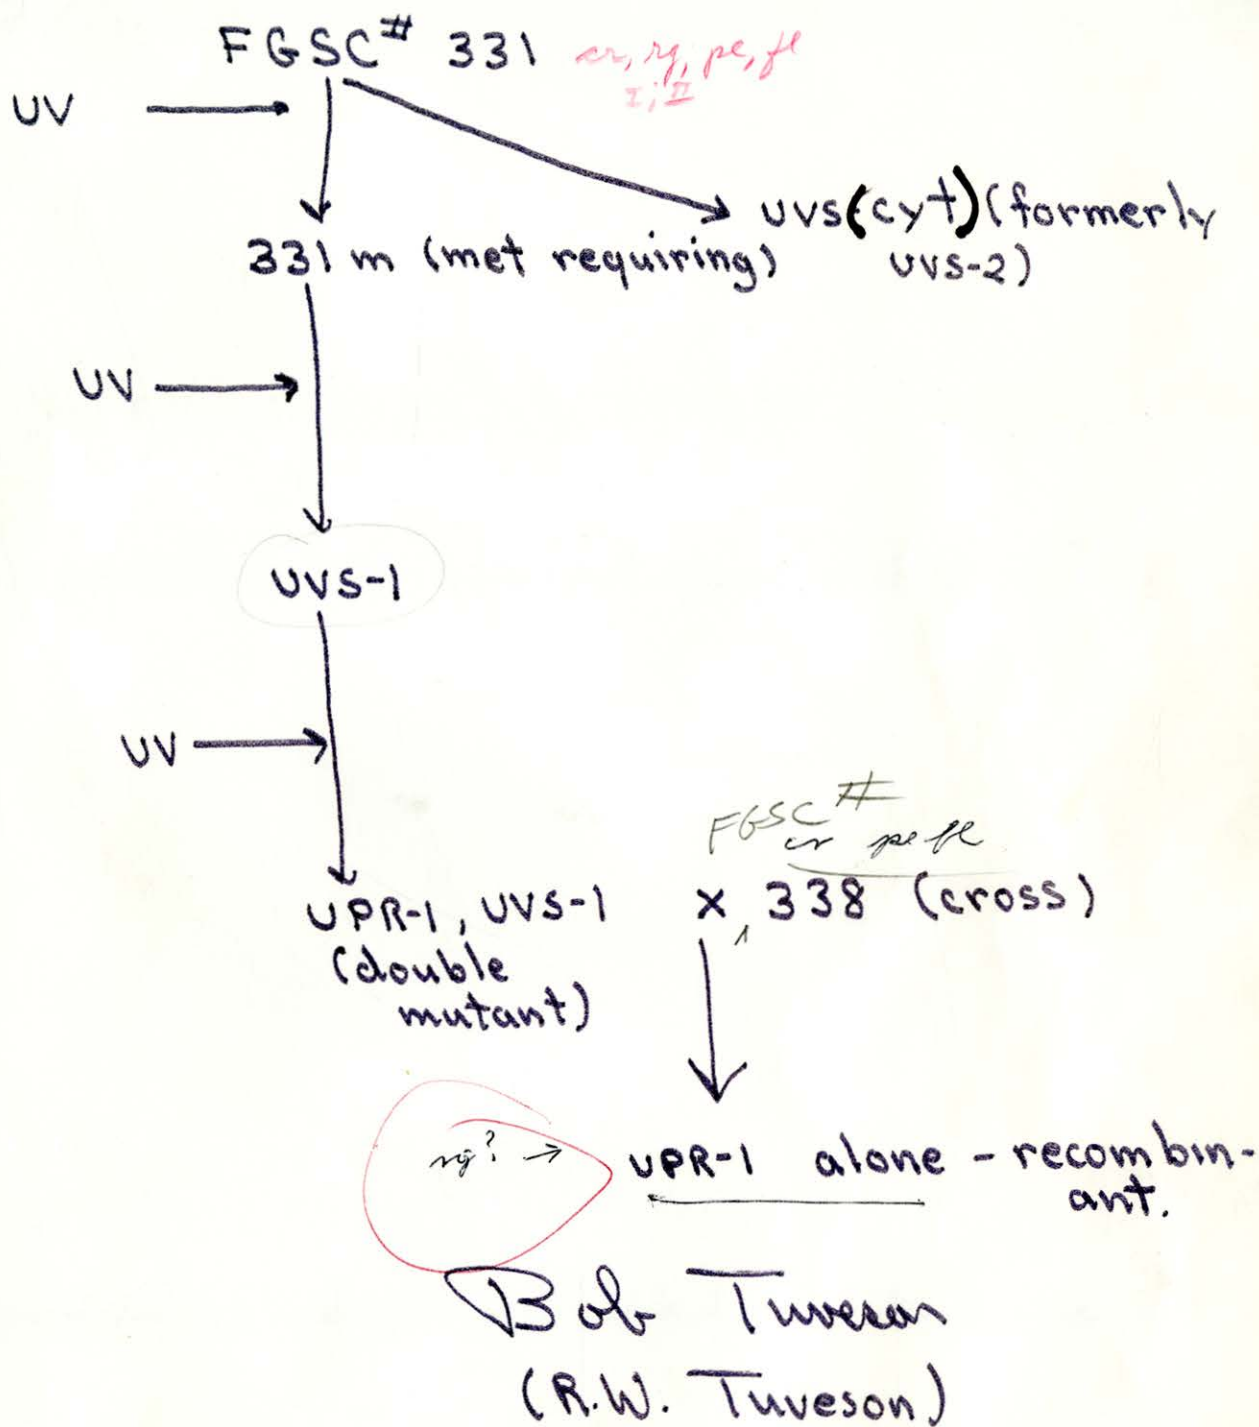 FGSC# 331 cr, rg, pe, fl
I; II
UV
UVS(cyt) (formerly
UVS-2)
331 m (met requiring)
UV
UVS-1
UV
FGSC #
cr pe fl
UPR-1, UVS-1 x 338 (cross)
(double
mutant)
rg? → UPR-1 alone - recombin-
ant.
Bob Tuveson
(R.W. Tuveson)